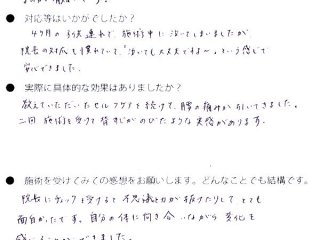 ● 対応等はいかがでしたか?
4ヶ月の子供連れで、施術中に泣いてしまいましたが
院長の対応も慣れていて、「泣いても大丈夫ですよ〜」という感じで
安心できました。
● 実際に具体的な効果はありましたか?
教えていただいたセルフケアを続けて、腰の痛みが引いてきました。
二回施術を受けて背すじがのびたような実感があります。
● 施術を受けてみての感想をお願いします。どんなことでも結構です。
院長にチェックを受けると不思議と力が抜けたりしてとても
面白かったです。自分の体に向き合いながら変化を
感じることができました。